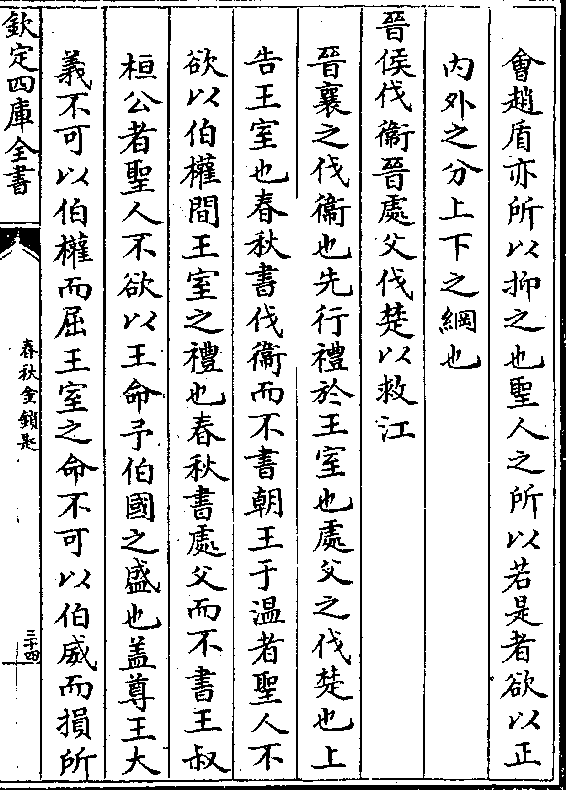 會趙盾亦所以抑之也聖人之所以若是者欲以正
內外之分上下之綱也
晉侯伐衞晉處父伐楚以救江
晉襄之伐衞也先行禮於王室也處父之伐楚也上
告王室也春秋書伐衞而不書朝王于温者聖人不
欲以伯權間王室之禮也春秋書處父而不書王叔
桓公者聖人不欲以王命予伯國之盛也盖尊王大
義不可以伯權而屈王室之命不可以伯威而損所
欽定四庫全書
春秋金鎖匙
三十四